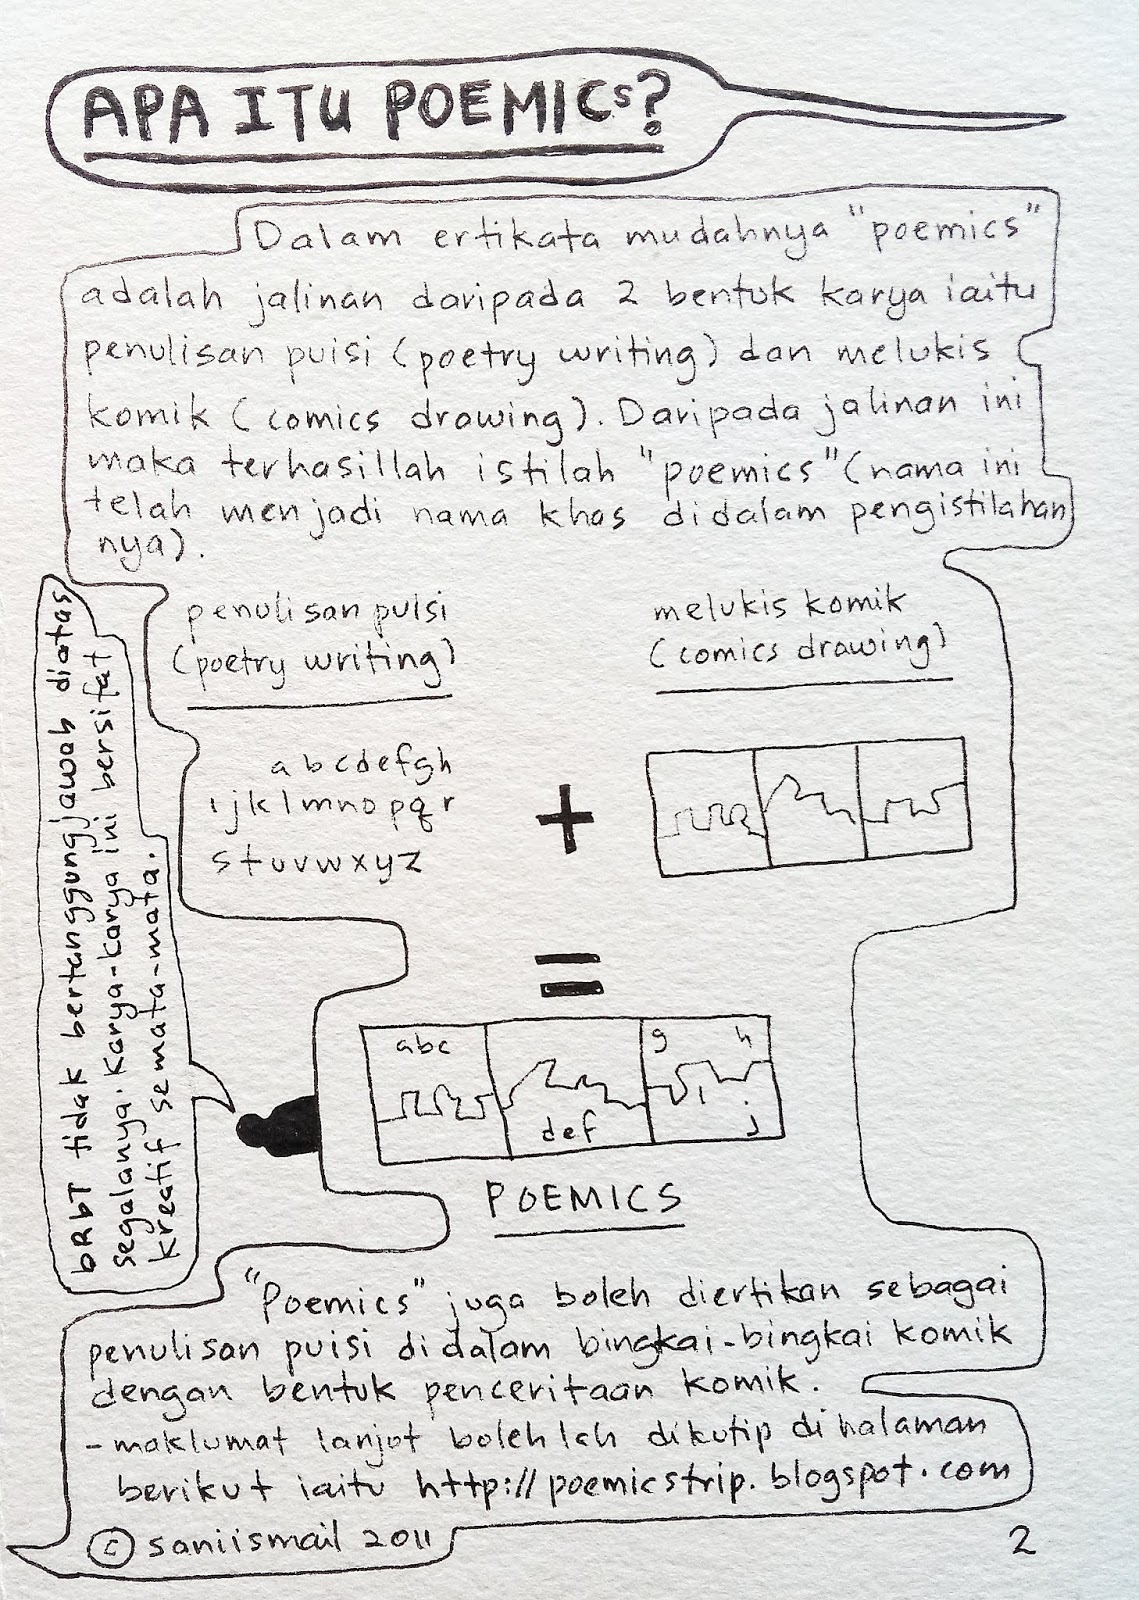 APA ITU POEMICs?
Dalam ertikata mudahnya "poemics"
adalah jalinan daripada 2 bentuk karya iaitu
penulisan puisi (poetry writing) dan melukis
komik (comics drawing). Daripada jalinan ini
maka terhasillah istilah "poemics" (nama ini
telah menjadi nama khas didalam pengistilahan
nya).
penulisan puisi
(poetry writing)
melukis komik
(comics drawing)
a b c d e f g h
i j k l m n o p q r
s t u v w x y z
+
=
abc
def
g h
i
j
POEMICS
bRbT tidak bertanggungjawab diatas
segalanya. Karya-karya ini bersifat
kreatif semata-mata.
"Poemics" juga boleh diertikan sebagai
penulisan puisi didalam bingkai-bingkai komik
dengan bentuk penceritaan komik.
- maklumat lanjot bolehlah dikutip dihalaman
berikut iaitu http://poemicstrip.blogspot.com
© saniismail 2011
2